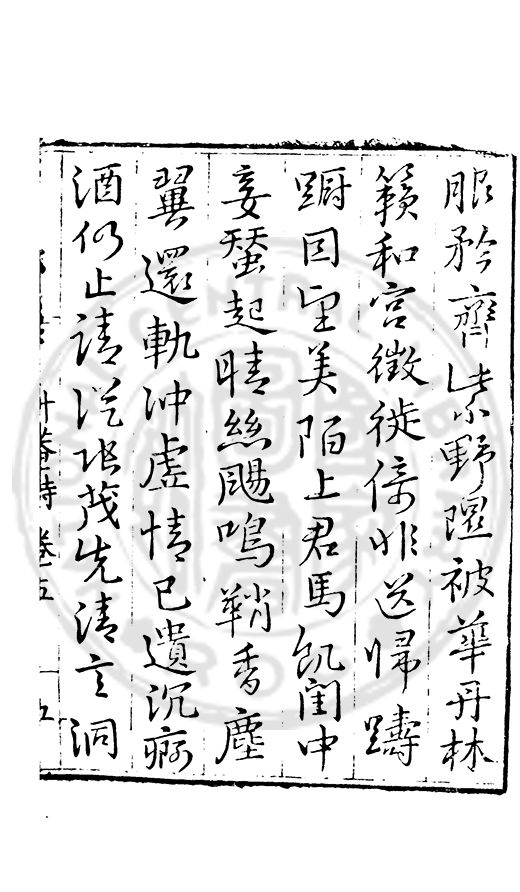 服矜齊紫野隰被華丹林
籟和宮徵徙倚非送歸躊
躕因望美陌上君馬飢閨中
妾蠶起晴絲颺鳴鞘香塵
翼還軌沖虛情已遺沉痾
酒仍止請從張茂先清言洞
菴詩 卷五